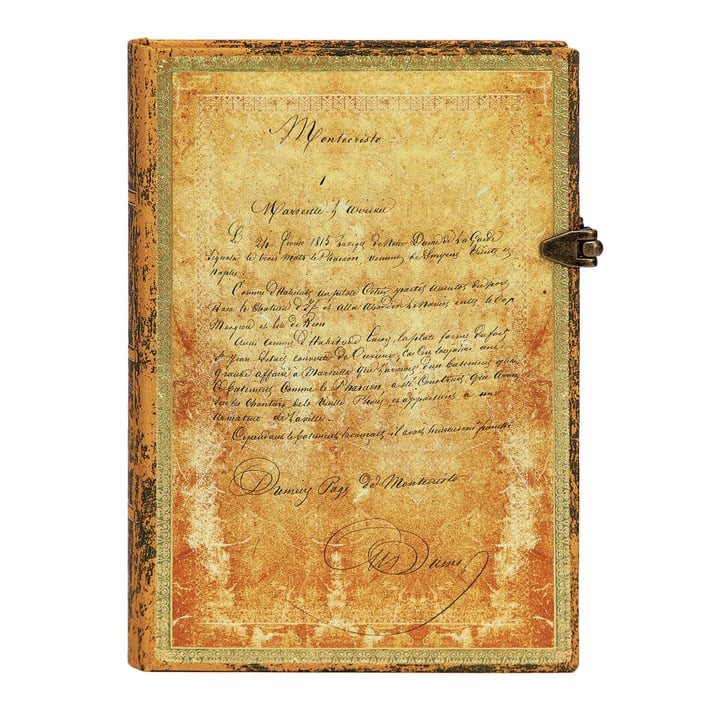 Montecristo
1
Marseille L'arrivée
Le 24 février 1815 la vigie de Notre Dame de La Garde
Signala le trois mats le Pharaon venant de Smyrne Trieste et
Naples.
Comme d'habitude un pilote Cotier partit aussitot du port
Rasa le Chateau d'If et alla aborder le navire entre le Cap
Morgiou et l'ile de Rion
Aussi comme d'habitude la plate forme du fort
St Jean s'etait couverte de Curieux, car c'est toujours une
grande affaire à Marseille que l'arrivée d'un batiment quand
ce batiment Comme le Pharaon a été Construit
Sur les Chantiers de la Vieille et appartient a un
armateur de la ville
Cependant le batiment avançait il avait heureusement
Dumas Page de Montecristo
Alex Dumas